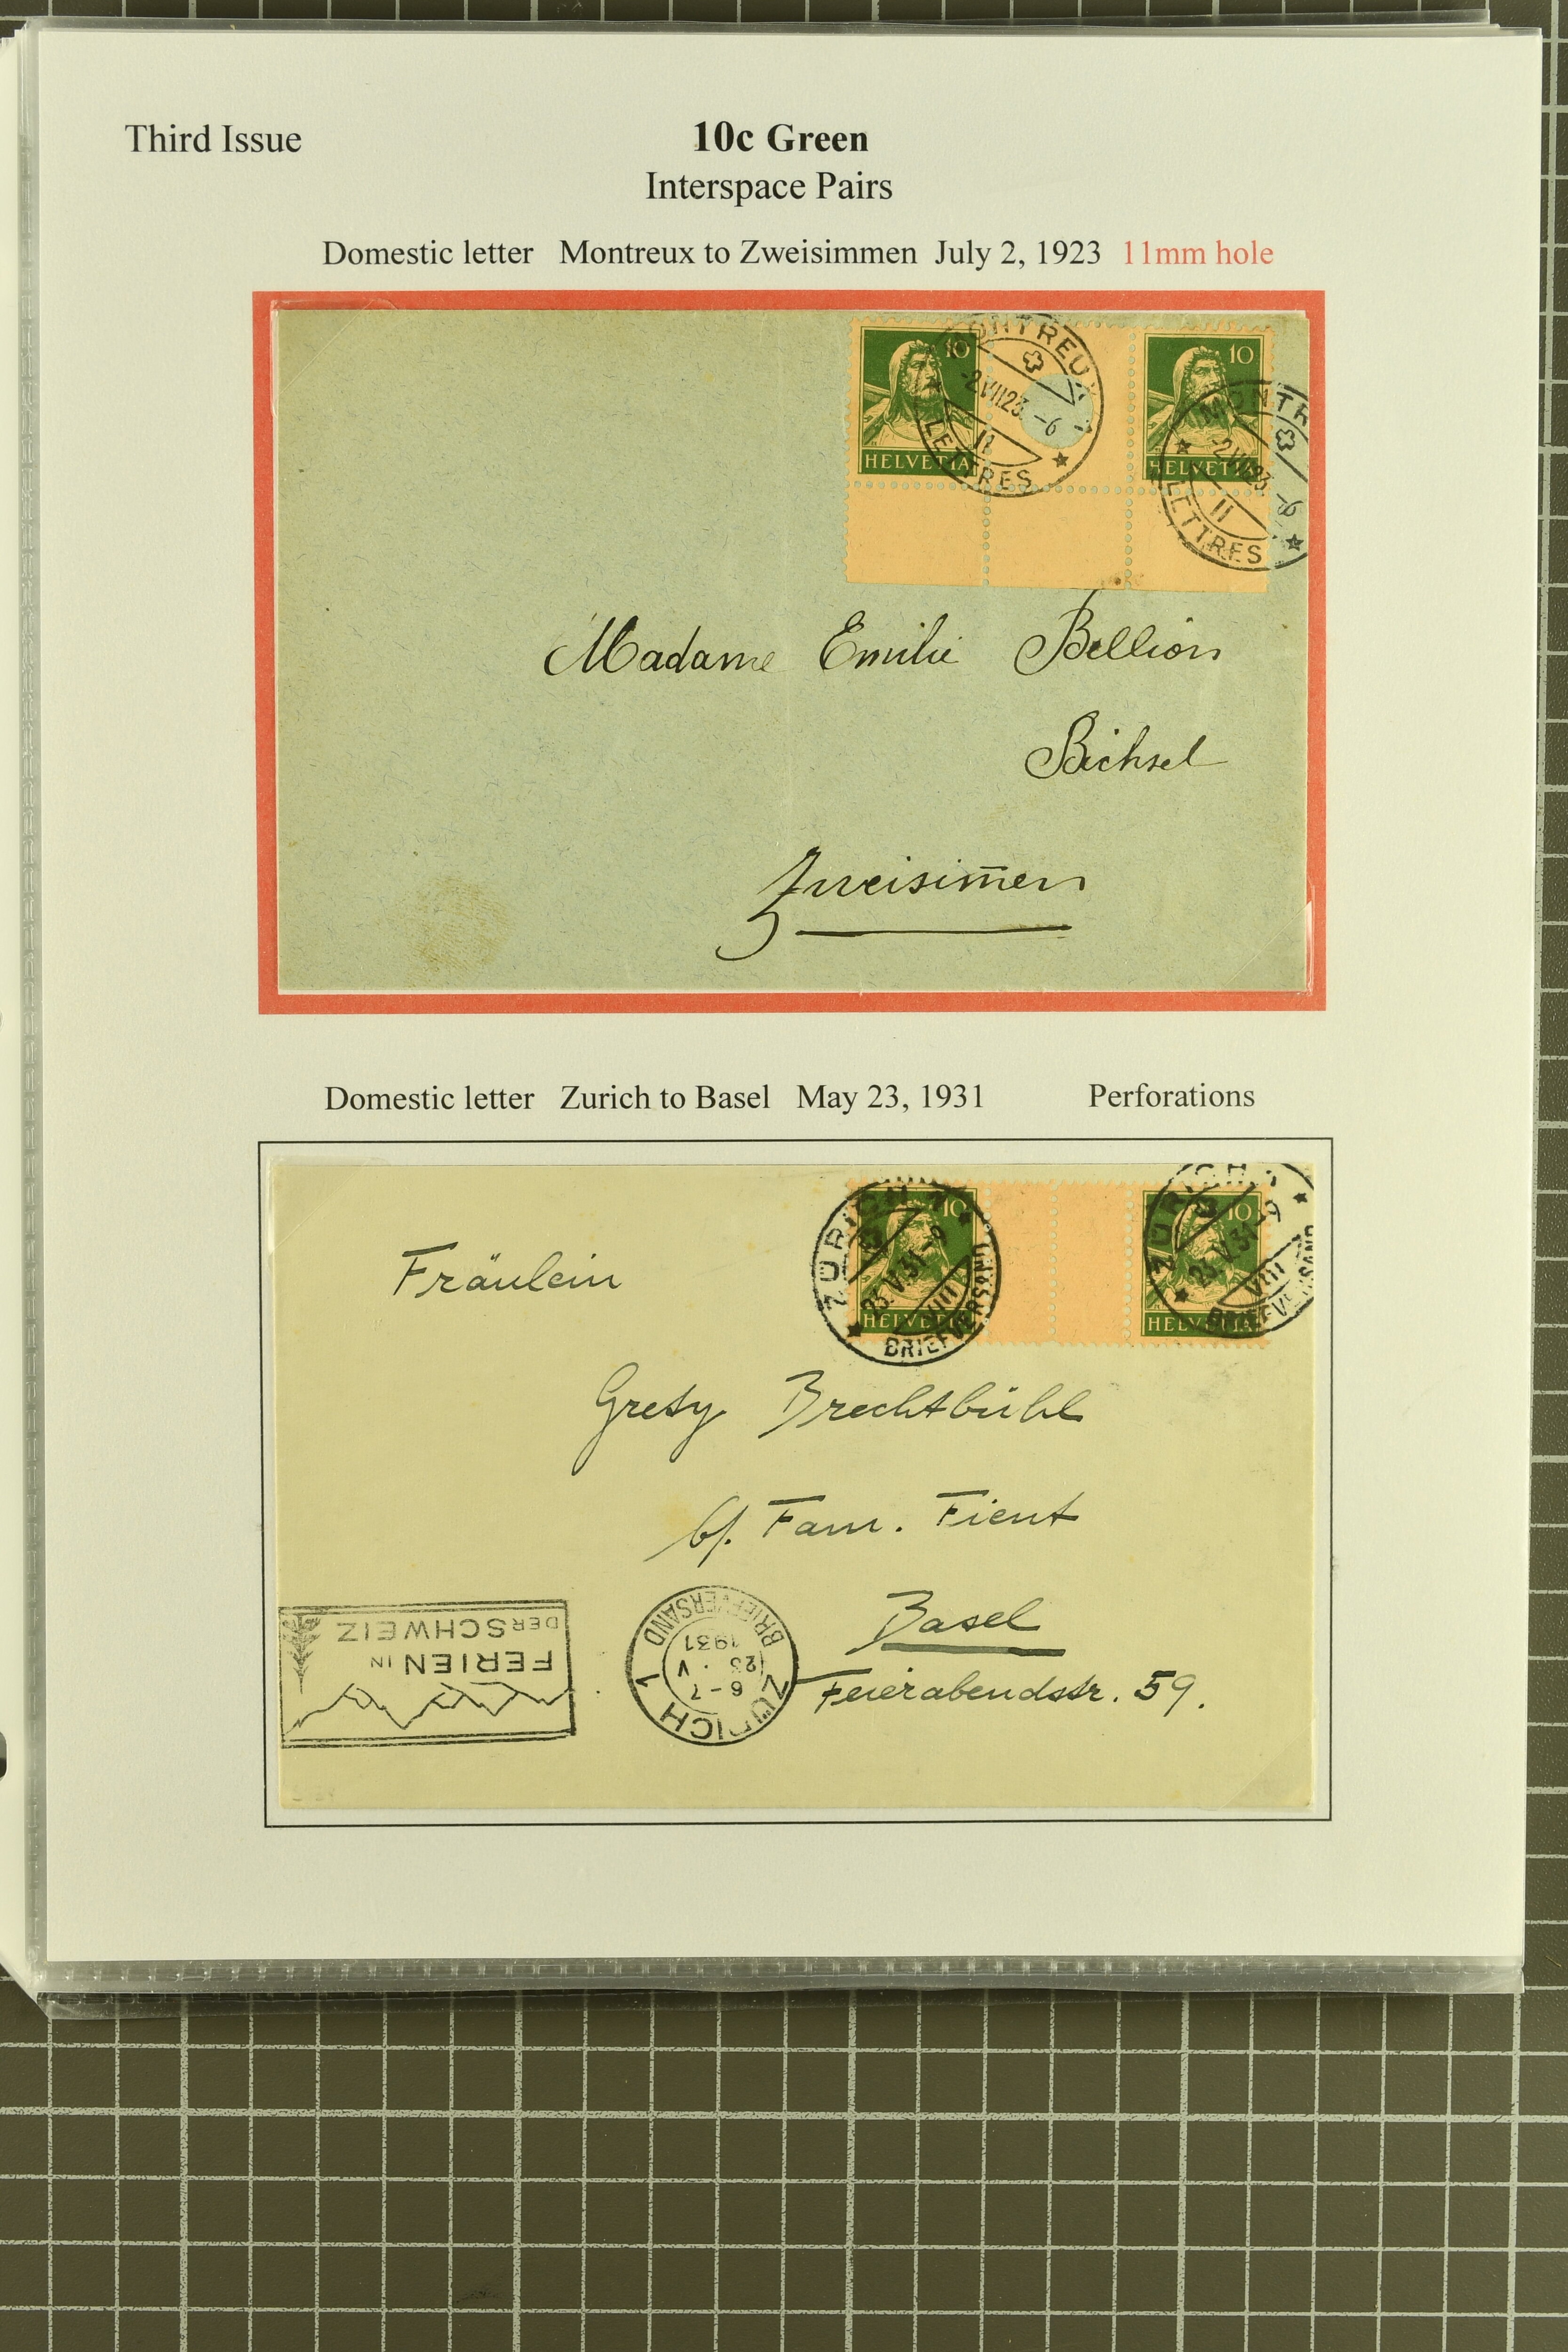 Third Issue
10c Green
Interspace Pairs
Domestic letter Montreux to Zweisimmen July 2, 1923 11mm hole
10
HELVETIA
MONTREUX
-2.VII.23.-6
II
LETTRES
10
HELVETIA
MONTR
-2.VII.23.-6
II
LETTRES
Madame Emilie Bellion
Bichsel
Zweisim̄en
Domestic letter Zurich to Basel May 23, 1931 Perforations
10
HELVETIA
ZÜRICH 1
23.V.31-9
VIII
BRIEFVERSAND
10
HELVETIA
ZÜRICH 1
23.V.31-9
VIII
BRIEFVERSAND
Fräulein
Grety Brechtbühl
b/. Fam. Fient
Basel
Feierabendstr. 59.
FERIEN IN
DER SCHWEIZ
ZÜRICH 1
6-7
23.V
1931
BRIEFVERSAND